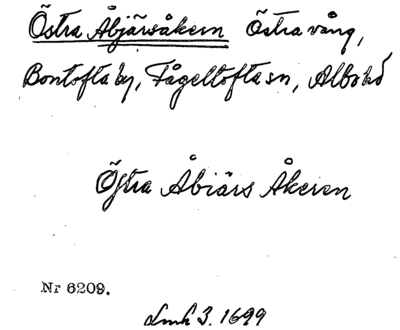 Östra Åbjärsåkern Östra vång,
Bontofta by, Fågeltofta sn, Albo hd
Östra Åbiärs Åkeren
Nr 6209.
Lmh 3. 1699